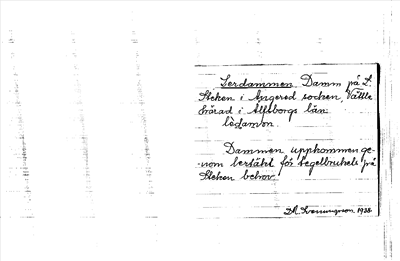 Lerdammen. Damm på L.
Steken i Angered socken, Vättle
härad i Älfsborgs län.
lèdamən.
Dammen uppkommen ge-
nom lertäkt för tegelbrukets på
Steken behov.
1938